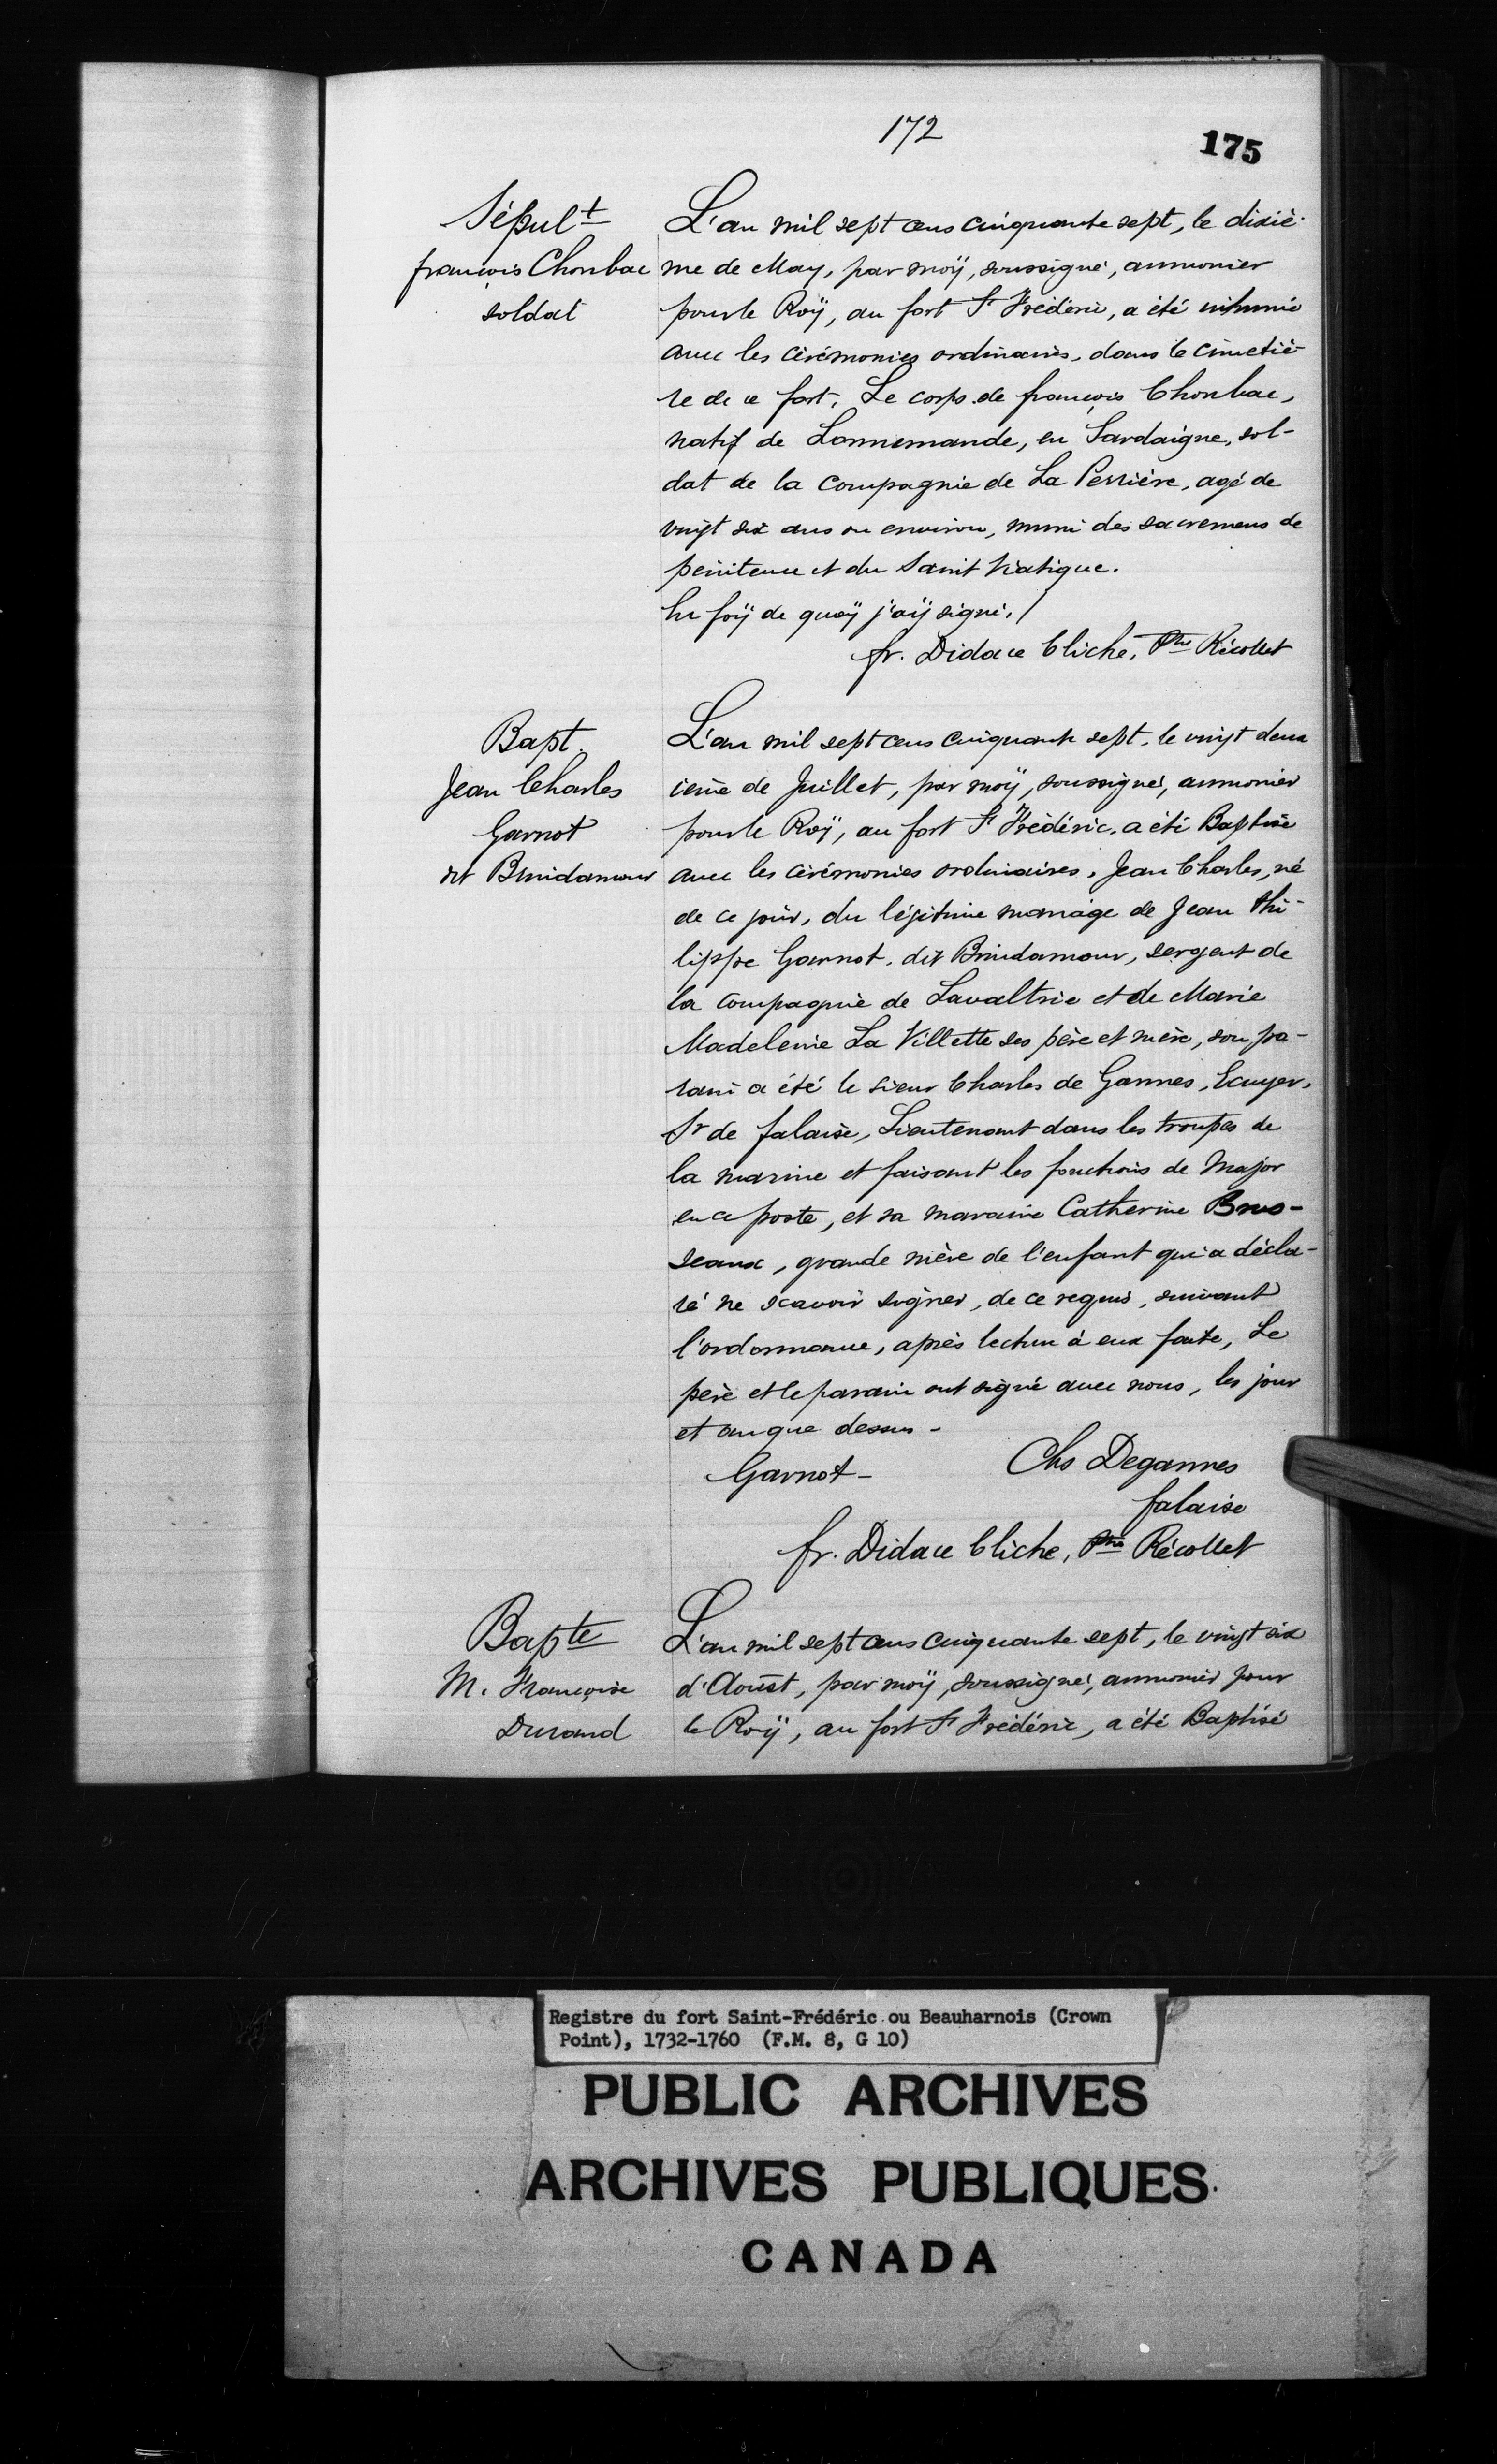 172
175
Sépult
françois Chonbac
soldat
L'an mil sept cens cinquante sept, le dixiè-
me de May, par moÿ, soussigné, aumonier
pour le Roÿ, au fort St Frédéric, a été inhumé
avec les cérémonies ordinaires, dans le cimetiè-
re de ce fort, Le corps de françois Chonbac,
natif de Lonnemande, en Sardaigne, sol-
dat de la compagnie de La Perrière, agé de
vingt six ans ou environ, muni des sacremens de
pénitence et du Saint Viatique.
En foÿ de quoÿ j'aÿ signé,/
fr. Didace Cliche, Ptre Récollet
Bapt.
Jean Charles
Garnot
dit Brindamour
L'an mil sept cens cinquante sept, le vingt deux
ième de Juillet, par moÿ, soussigné, aumonier
pour le Roÿ, au fort St Frédéric, a été Baptisé
avec les cérémonies ordinaires, Jean Charles, né
de ce jour, du légitime mariage de Jean Phi-
lippe Garnot, dit Brindamour, sergent de
la compagnie de Lavaltrie et de Marie
Madeleine La Villette ses père et mère, son pa-
rain a été le sieur Charles de Gannes, Ecuyer,
Sr de falaise, Lieutenant dans les troupes de
la marine et faisant les fonctions de Major
en ce poste, et sa maraine Catherine Brus-
seaux, grande mère de l'enfant qui a décla-
ré ne scavoir signer, de ce requis, suivant
l'ordonnance, après lecture à eux faite, Le
père et le parain ont signé avec nous, les jour
et an que dessus -
Garnot -
Chs Degannes
falaise
fr. Didace Cliche, Ptre Récollet
Bapte
M. Françoise
Durand
L'an mil sept cens cinquante sept, le vingt six
d'Aoûst, par moÿ, soussigné, aumonier pour
le Roÿ, au fort St Frédéric, a été Baptisé
Registre du fort Saint-Frédéric ou Beauharnois (Crown
Point), 1732-1760 (F.M. 8, G 10)
PUBLIC ARCHIVES
ARCHIVES PUBLIQUES
CANADA